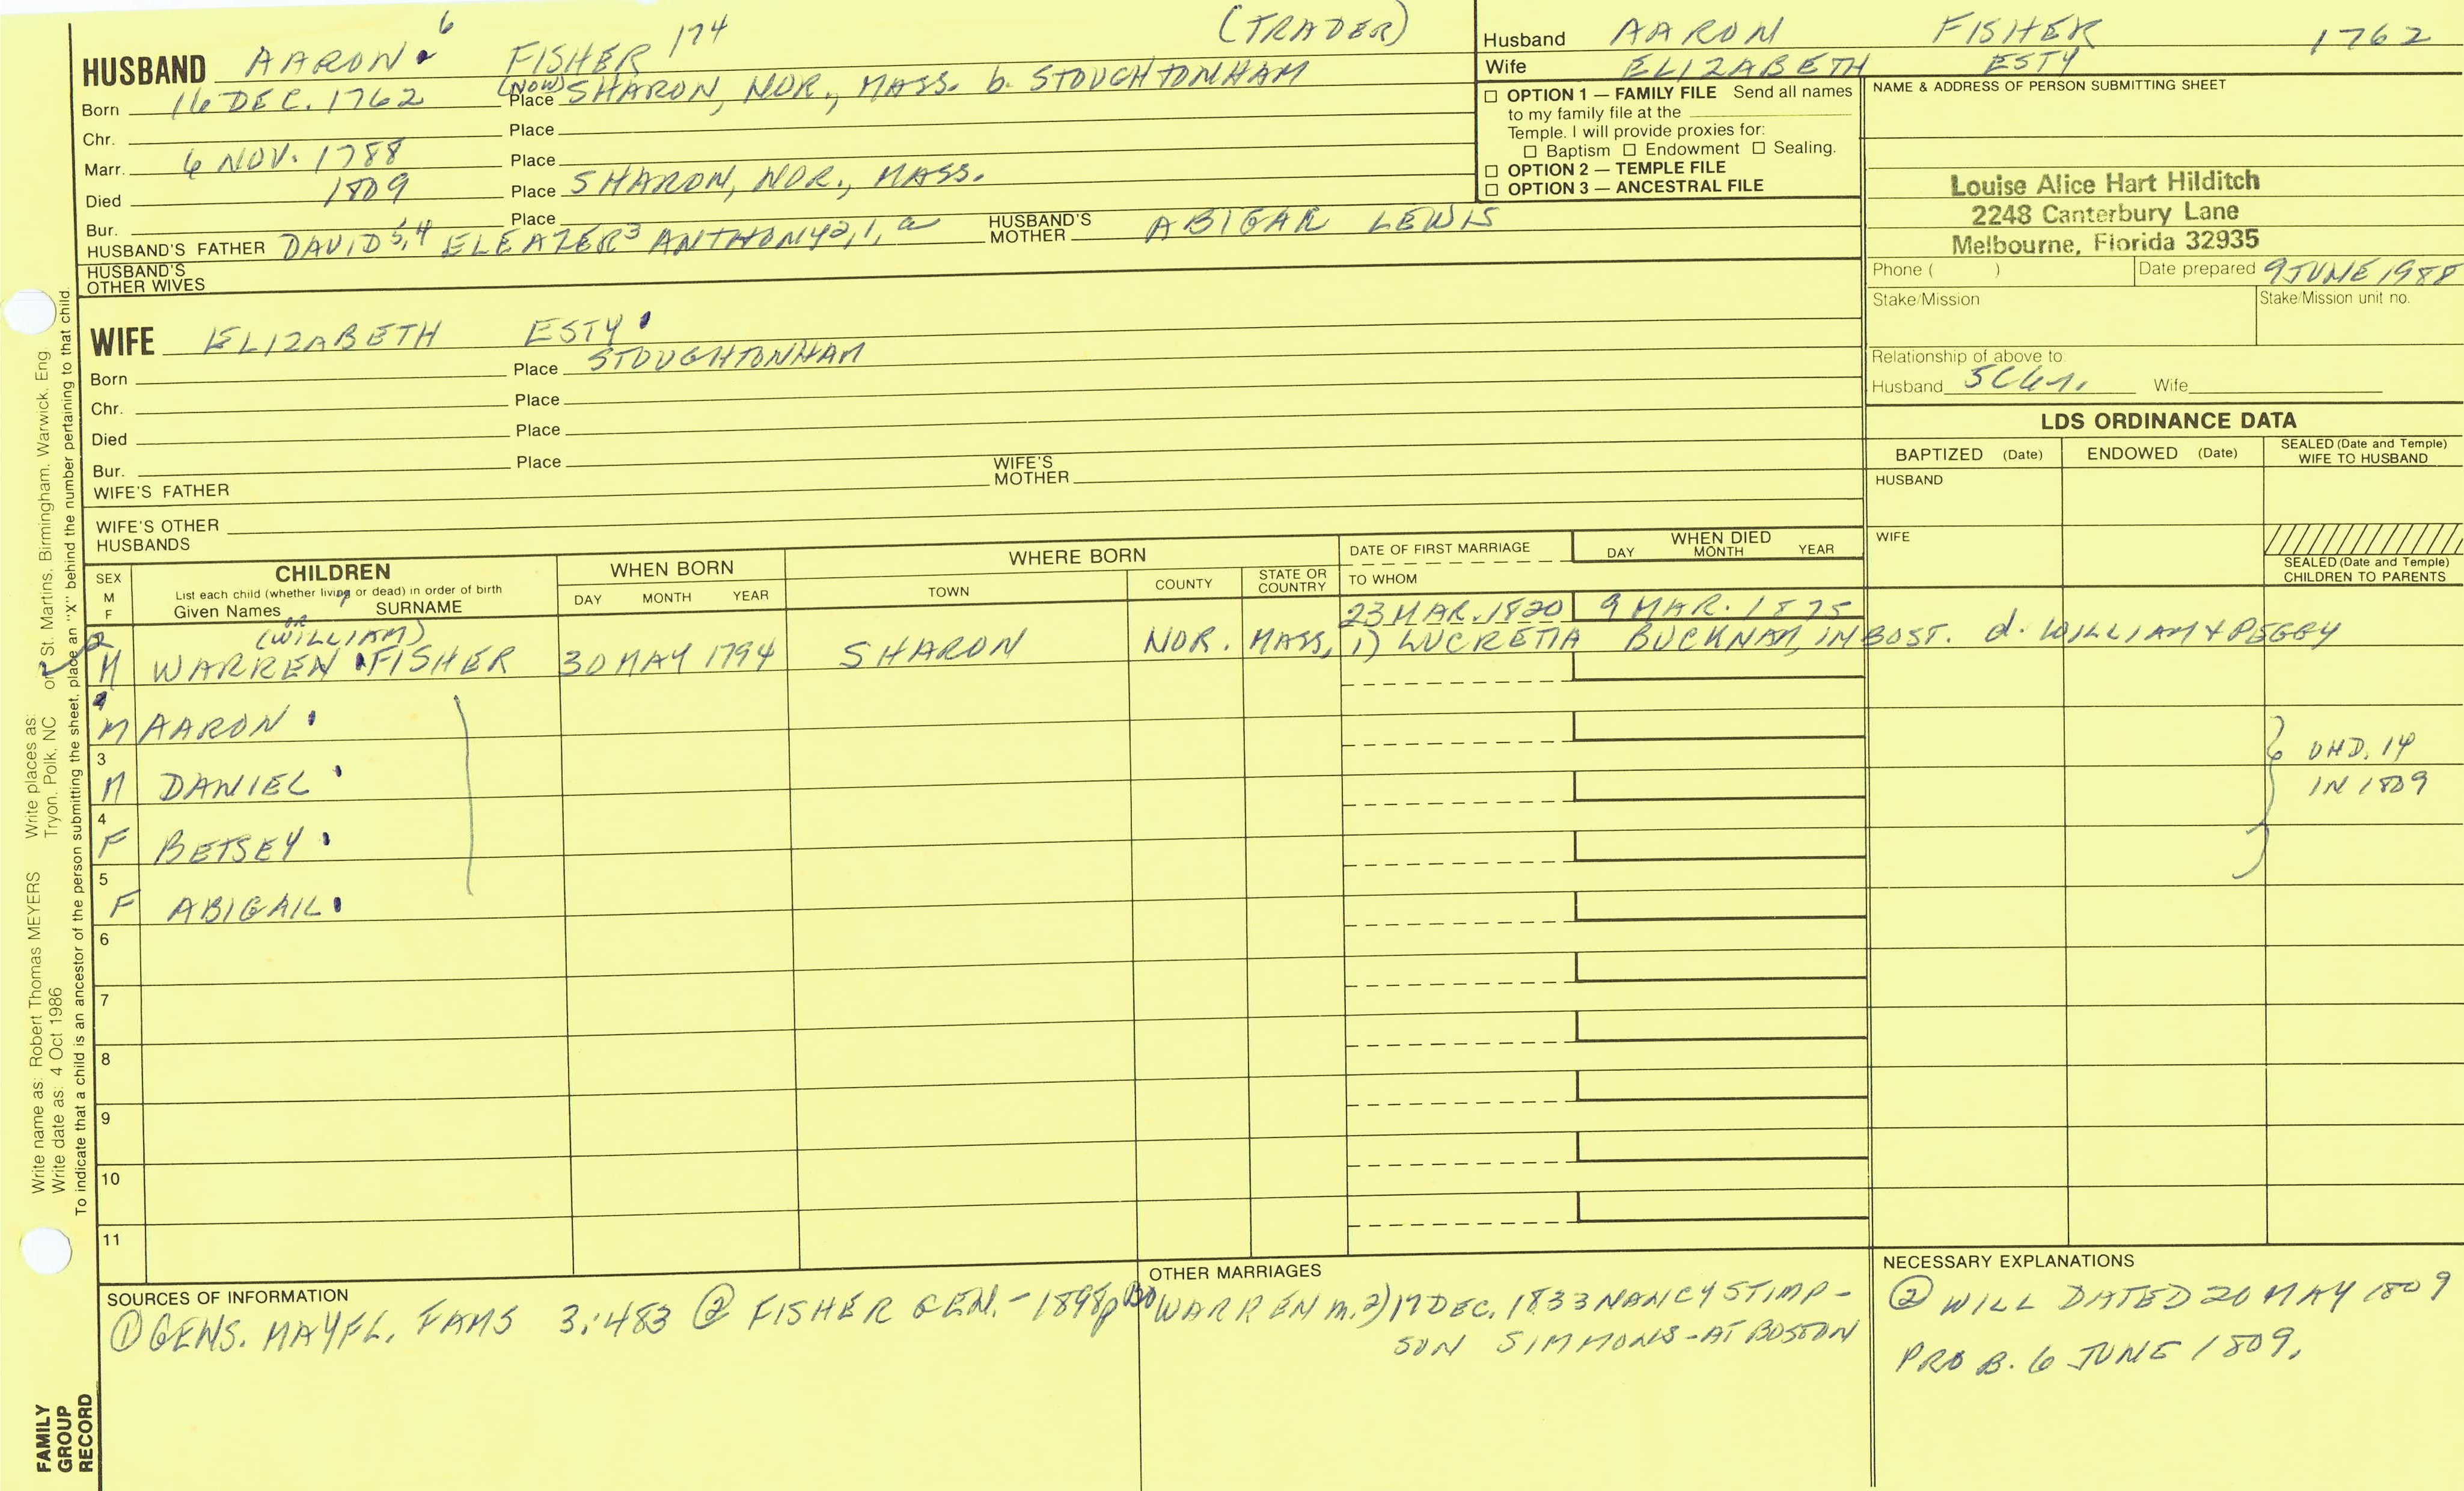 HUSBAND AARON 6 FISHER 174 (TRADER)
Born 16 DEC. 1762 Place (NOW) SHARON, NOR., MASS. b. STOUGHTONHAM
Chr. Place
Marr. 6 NOV. 1788 Place
Died 1809 Place SHARON, NOR., MASS.
Bur. Place
HUSBAND'S FATHER DAVID 5,4 ELEAZER 3 ANTHONY 2,1, a HUSBAND'S MOTHER ABIGAIL LEWIS
HUSBAND'S OTHER WIVES
Husband AARON FISHER 1762
Wife ELIZABETH ESTY
OPTION 1 — FAMILY FILE Send all names
to my family file at the
Temple. I will provide proxies for:
Baptism Endowment Sealing.
OPTION 2 — TEMPLE FILE
OPTION 3 — ANCESTRAL FILE
NAME & ADDRESS OF PERSON SUBMITTING SHEET
Louise Alice Hart Hilditch
2248 Canterbury Lane
Melbourne, Florida 32935
Phone ( ) Date prepared 9 JUNE 1988
Stake/Mission Stake/Mission unit no.
Relationship of above to:
Husband 5C6r. Wife
WIFE ELIZABETH ESTY
Born Place STOUGHTONHAM
Chr. Place
Died Place
Bur. Place
WIFE'S FATHER WIFE'S MOTHER
WIFE'S OTHER HUSBANDS
LDS ORDINANCE DATA
BAPTIZED (Date) ENDOWED (Date) SEALED (Date and Temple) WIFE TO HUSBAND
HUSBAND
WIFE
SEALED (Date and Temple) CHILDREN TO PARENTS
SEX M F
CHILDREN
List each child (whether living or dead) in order of birth
Given Names SURNAME
WHEN BORN
DAY MONTH YEAR
WHERE BORN
TOWN COUNTY STATE OR COUNTRY
DATE OF FIRST MARRIAGE
TO WHOM
WHEN DIED
DAY MONTH YEAR
OR (WILLIAM) 23 MAR. 1820 9 MAR. 1875
2 M WARREN FISHER 30 MAY 1794 SHARON NOR. MASS, 1) LUCRETIA BUCKNAM, IN BOST. d. WILLIAM & PEGGY
M AARON
3 M DANIEL
UND. 14
IN 1809
4 F BETSEY
5 F ABIGAIL
6
7
8
9
10
11
SOURCES OF INFORMATION
① GENS. MAYFL. FAMS 3:483 ② FISHER GEN. - 1898 p
OTHER MARRIAGES
WARREN m. 2) 17 DEC. 1833 NANCY STIMP-
SON SIMMONS - AT BOSTON
NECESSARY EXPLANATIONS
② WILL DATED 20 MAY 1809
PROB. 6 JUNE 1809.
Write name as: Robert Thomas MEYERS Write places as: Tryon, Polk, NC or St. Martins, Birmingham, Warwick, Eng.
Write date as: 4 Oct 1986
To indicate that a child is an ancestor of the person submitting the sheet, place an "X" behind the number pertaining to that child.
FAMILY
GROUP
RECORD